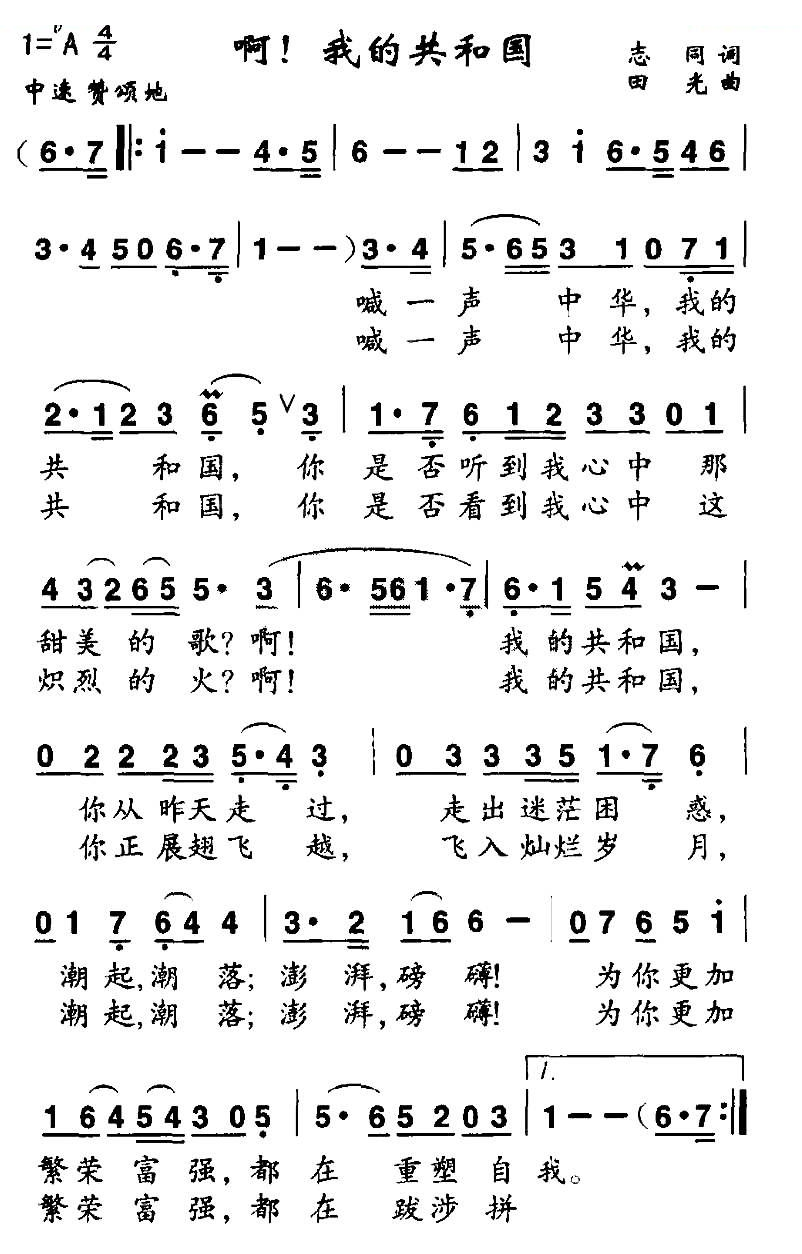 1=♭A 4/4 啊！我的共和国 志同词
中速 赞颂地 田光曲
(6·7 ‖: i - - 4·5 | 6 - - 12 | 3 i 6·5 46 |
3·4 50 6·7 | 1 - - ) 3·4 | 5·65 3 1 0 71 |
喊一声 中华，我的
喊一声 中华，我的
2·12 3 6 5 ∨ 3 | 1·7 6 12 3 3 01 |
共 和国，你 是否听到我心中 那
共 和国，你 是否看到我心中 这
4 32 65 5· 3 | 6· 561·7 | 6·1 5 4 3 - |
甜美的歌？啊！ 我的共和国，
炽烈的火？啊！ 我的共和国，
0 2 2 23 5·4 3 | 0 3 3 35 1·7 6 |
你从昨天走过， 走出迷茫困惑，
你正展翅飞越， 飞入灿烂岁月，
01 7 64 4 | 3·2 16 6 - | 07 65 i |
潮起，潮落；澎湃，磅礴！ 为你更加
潮起，潮落；澎湃，磅礴！ 为你更加
1 64 54 3 05 | 5·6 52 03 | 1. 1 - - (6·7 :‖
繁荣富强，都在 重塑自我。
繁荣富强，都在 跋涉拼